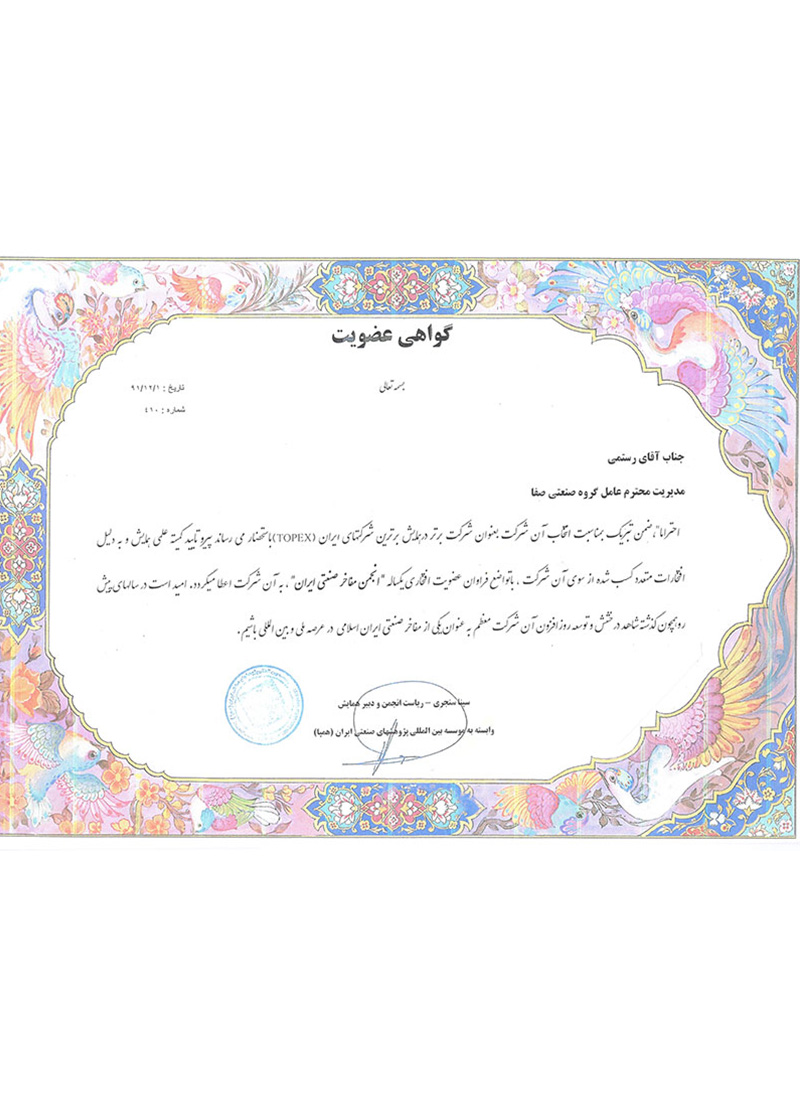 گواهی عضویت
بسمه تعالی
تاریخ : ۹۱/۱۲/۱
شماره : ۴۱۰
جناب آقای رستمی
مدیریت محترم عامل گروه صنعتی صفا
احتراما"، ضمن تبریک بمناسبت انتخاب آن شرکت بعنوان شرکت برتر در همایش برترین شرکتهای ایران (TOPEX) باستحضار می رساند پیرو تایید کمیته علمی همایش و به دلیل
افتخارات متعدد کسب شده از سوی آن شرکت ، باتواضع فراوان عضویت افتخاری یکساله "انجمن مفاخر صنعتی ایران" ، به آن شرکت اعطا میگردد. امید است در سالهای پیش
رو همچون گذشته شاهد درخشش و توسعه روز افزون آن شرکت معظم به عنوان یکی از مفاخر صنعتی ایران اسلامی در عرصه ملی و بین المللی باشیم.
سینا سنجری - ریاست انجمن و دبیر همایش
وابسته به موسسه بین المللی پژوهشهای صنعتی ایران (همپا)